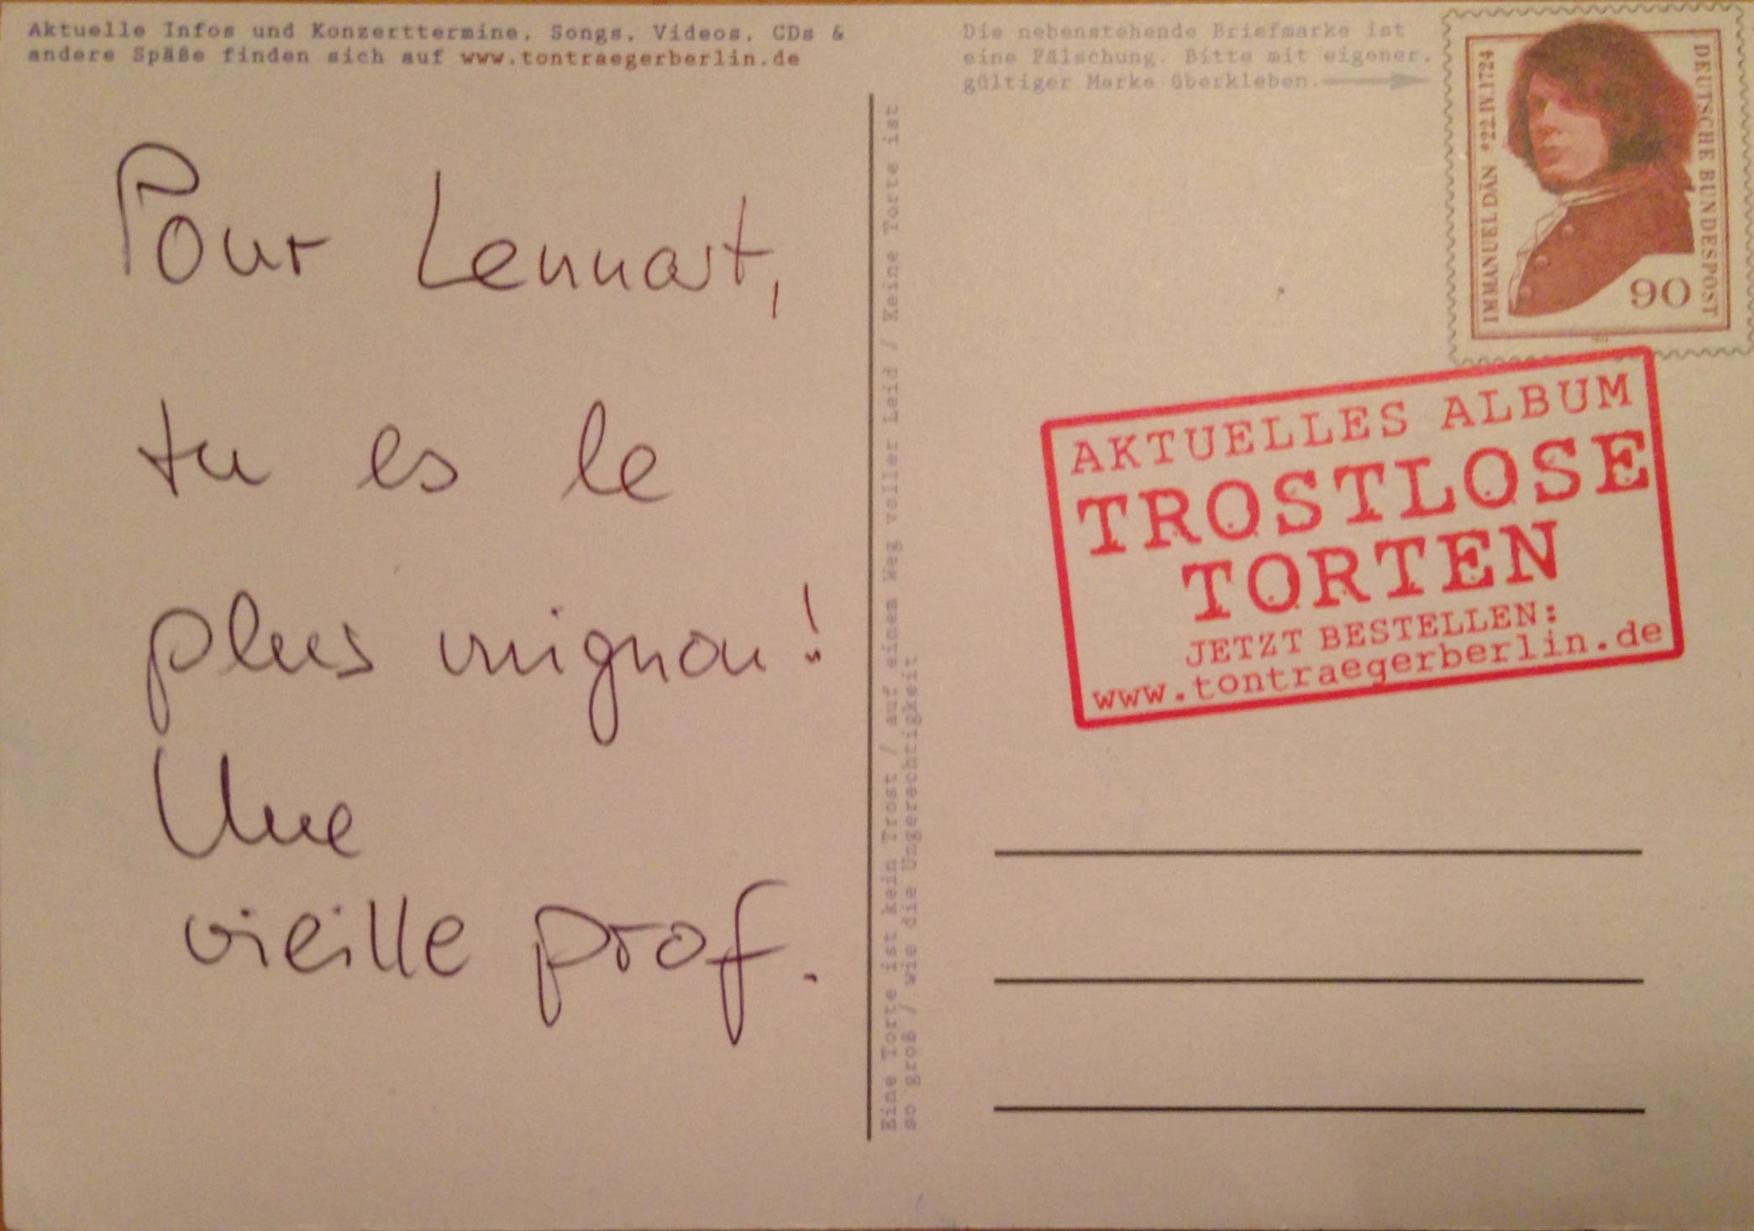 Aktuelle Infos und Konzerttermine, Songs, Videos, CDs &
andere Späße finden sich auf www.tontraegerberlin.de
Pour Lennart,
tu es le
plus mignon!
Une
vieille prof.
Eine Torte ist kein Trost / auf einem Weg voller Leid / Keine Torte ist
so groß / wie die Ungerechtigkeit
Die nebenstehende Briefmarke ist
eine Fälschung. Bitte mit eigener,
gültiger Marke überkleben.
IMMANUEL DÄN *22.IV.1724
DEUTSCHE BUNDESPOST
90
AKTUELLES ALBUM
TROSTLOSE
TORTEN
JETZT BESTELLEN:
www.tontraegerberlin.de